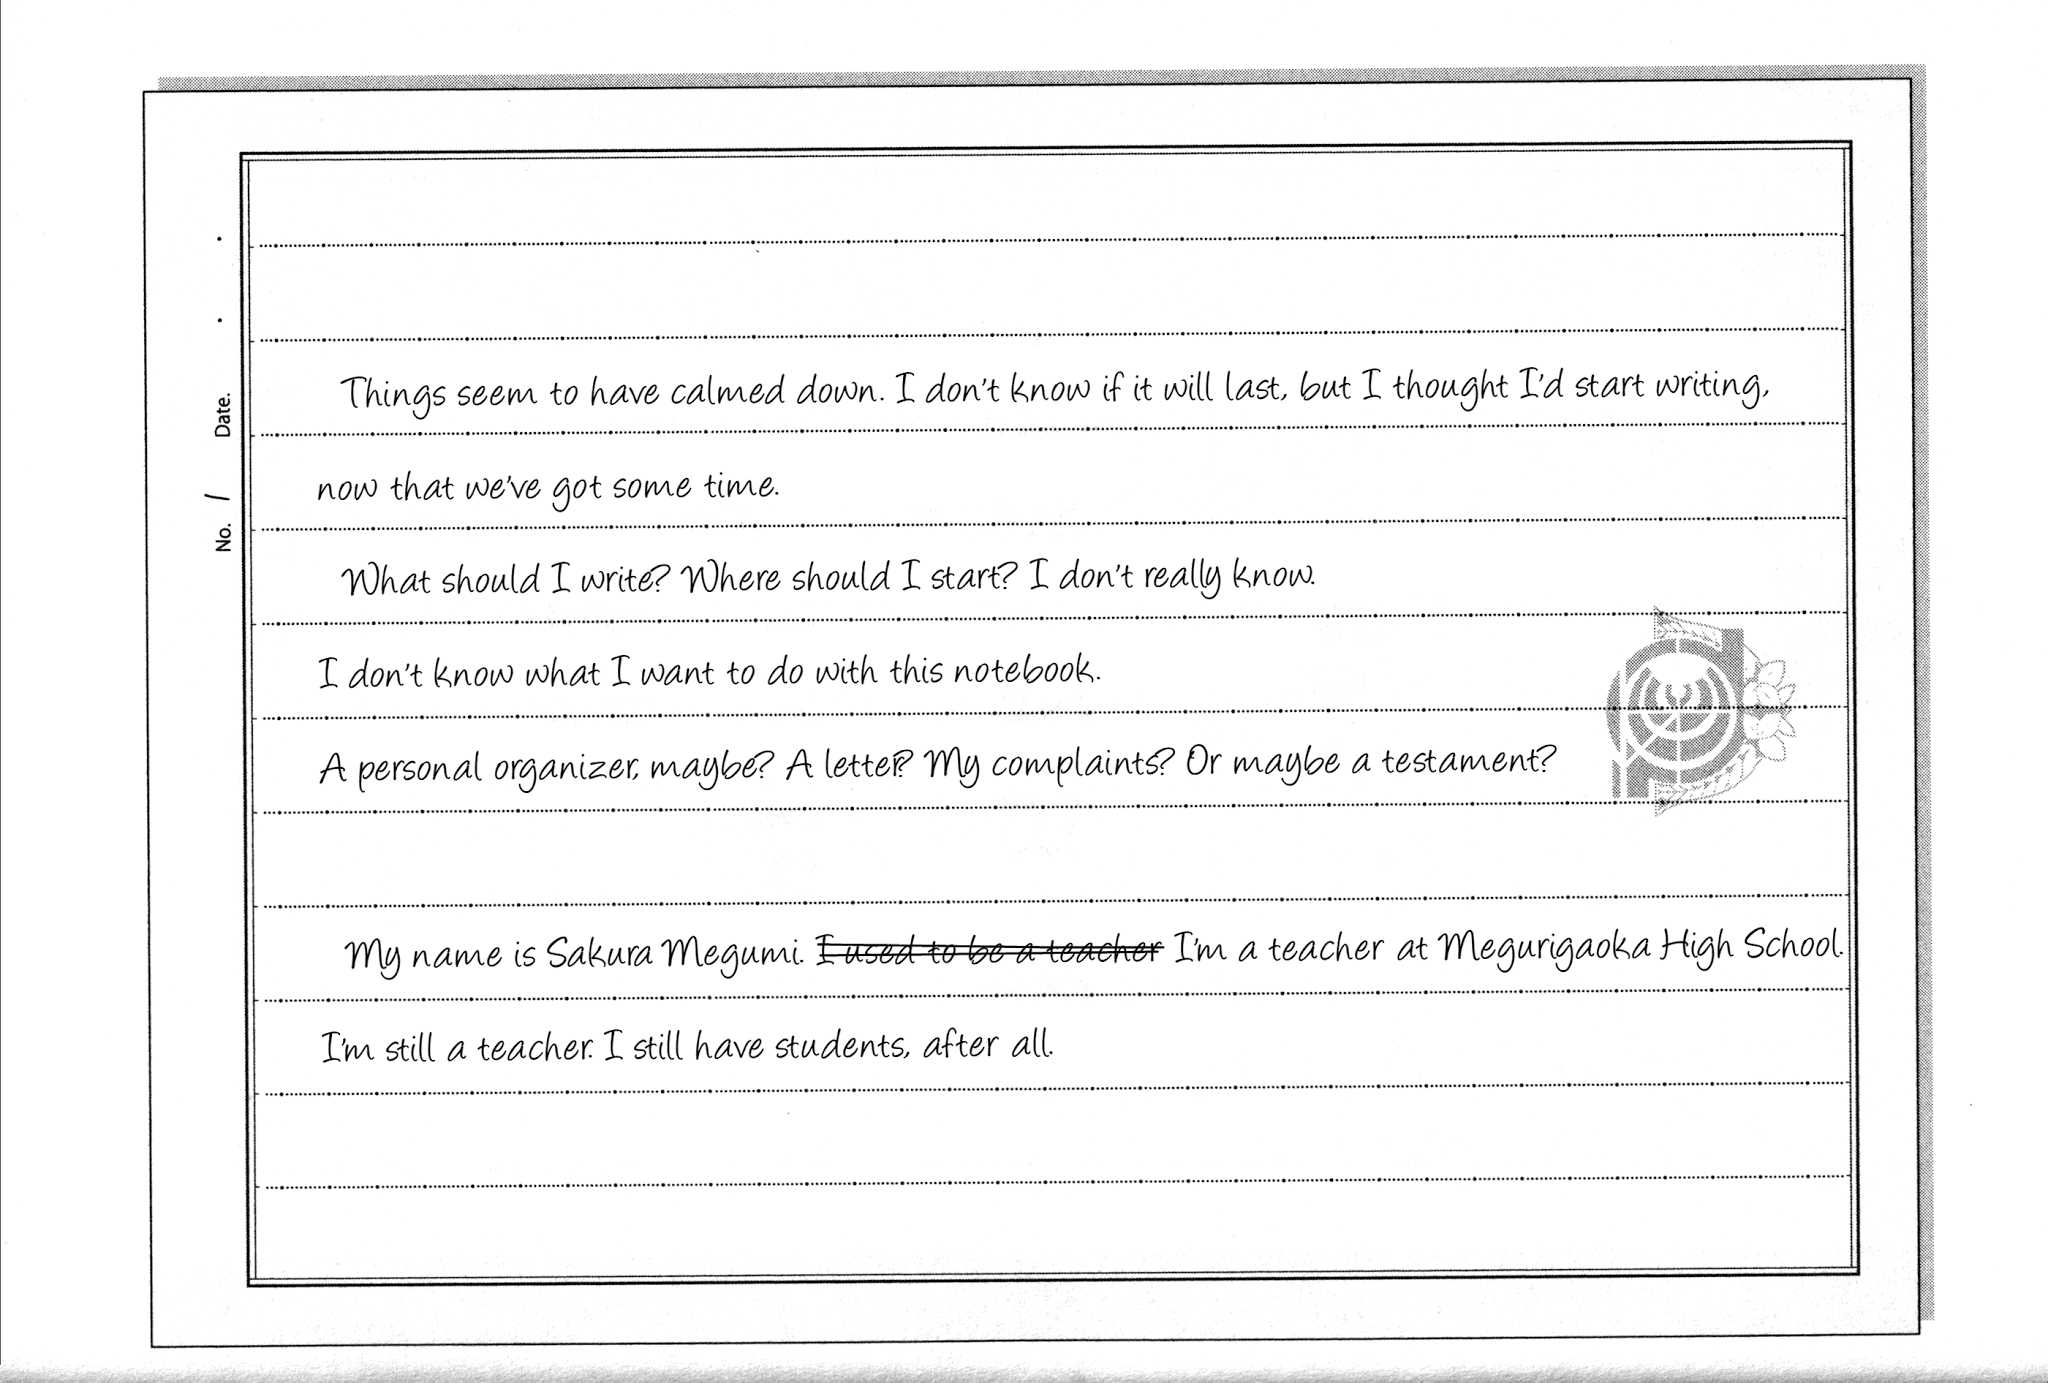 No. 1 Date. . .
Things seem to have calmed down. I don't know if it will last, but I thought I'd start writing,
now that we've got some time.
What should I write? Where should I start? I don't really know.
I don't know what I want to do with this notebook.
A personal organizer, maybe? A letter? My complaints? Or maybe a testament?
My name is Sakura Megumi. I used to be a teacher I'm a teacher at Megurigaoka High School.
I'm still a teacher. I still have students, after all.